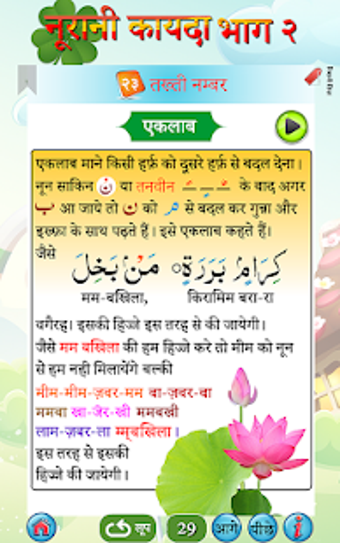 नूरानी कायदा भाग २
२३ तख़्ती नम्बर
एकलाब
एकलाब माने किसी हर्फ़ को दुसरे हर्फ़ से बदल देना।
नून साकिन نْ या तनवीन ـًـ ـٍـ ـٌـ के बाद अगर
ب आ जाये तो ن को م से बदल कर गुन्ना और
इख्फ़ा के साथ पढ़ते हैं। इसे एकलाब कहते हैं।
जैसे
كِرَامٍ بَرَرَةٍ مَنْ بَخِلَ
मम-बखिला, किरामिम बरा-रा
वगैरह। इसकी हिज्जे इस तरह से की जायेगी।
जैसे मम बखिला की हम हिज्जे करे तो मीम को नून
से हम नही मिलायेंगे बल्की
मीम-मीम-ज़बर-मम बा-ज़बर-बा
ममबा खा-जेर-खी ममबखी
लाम-ज़बर-ला ममबखिला।
इस तरह से इसकी
हिज्जे की जायेगी।
29
आगे
पीछे
i